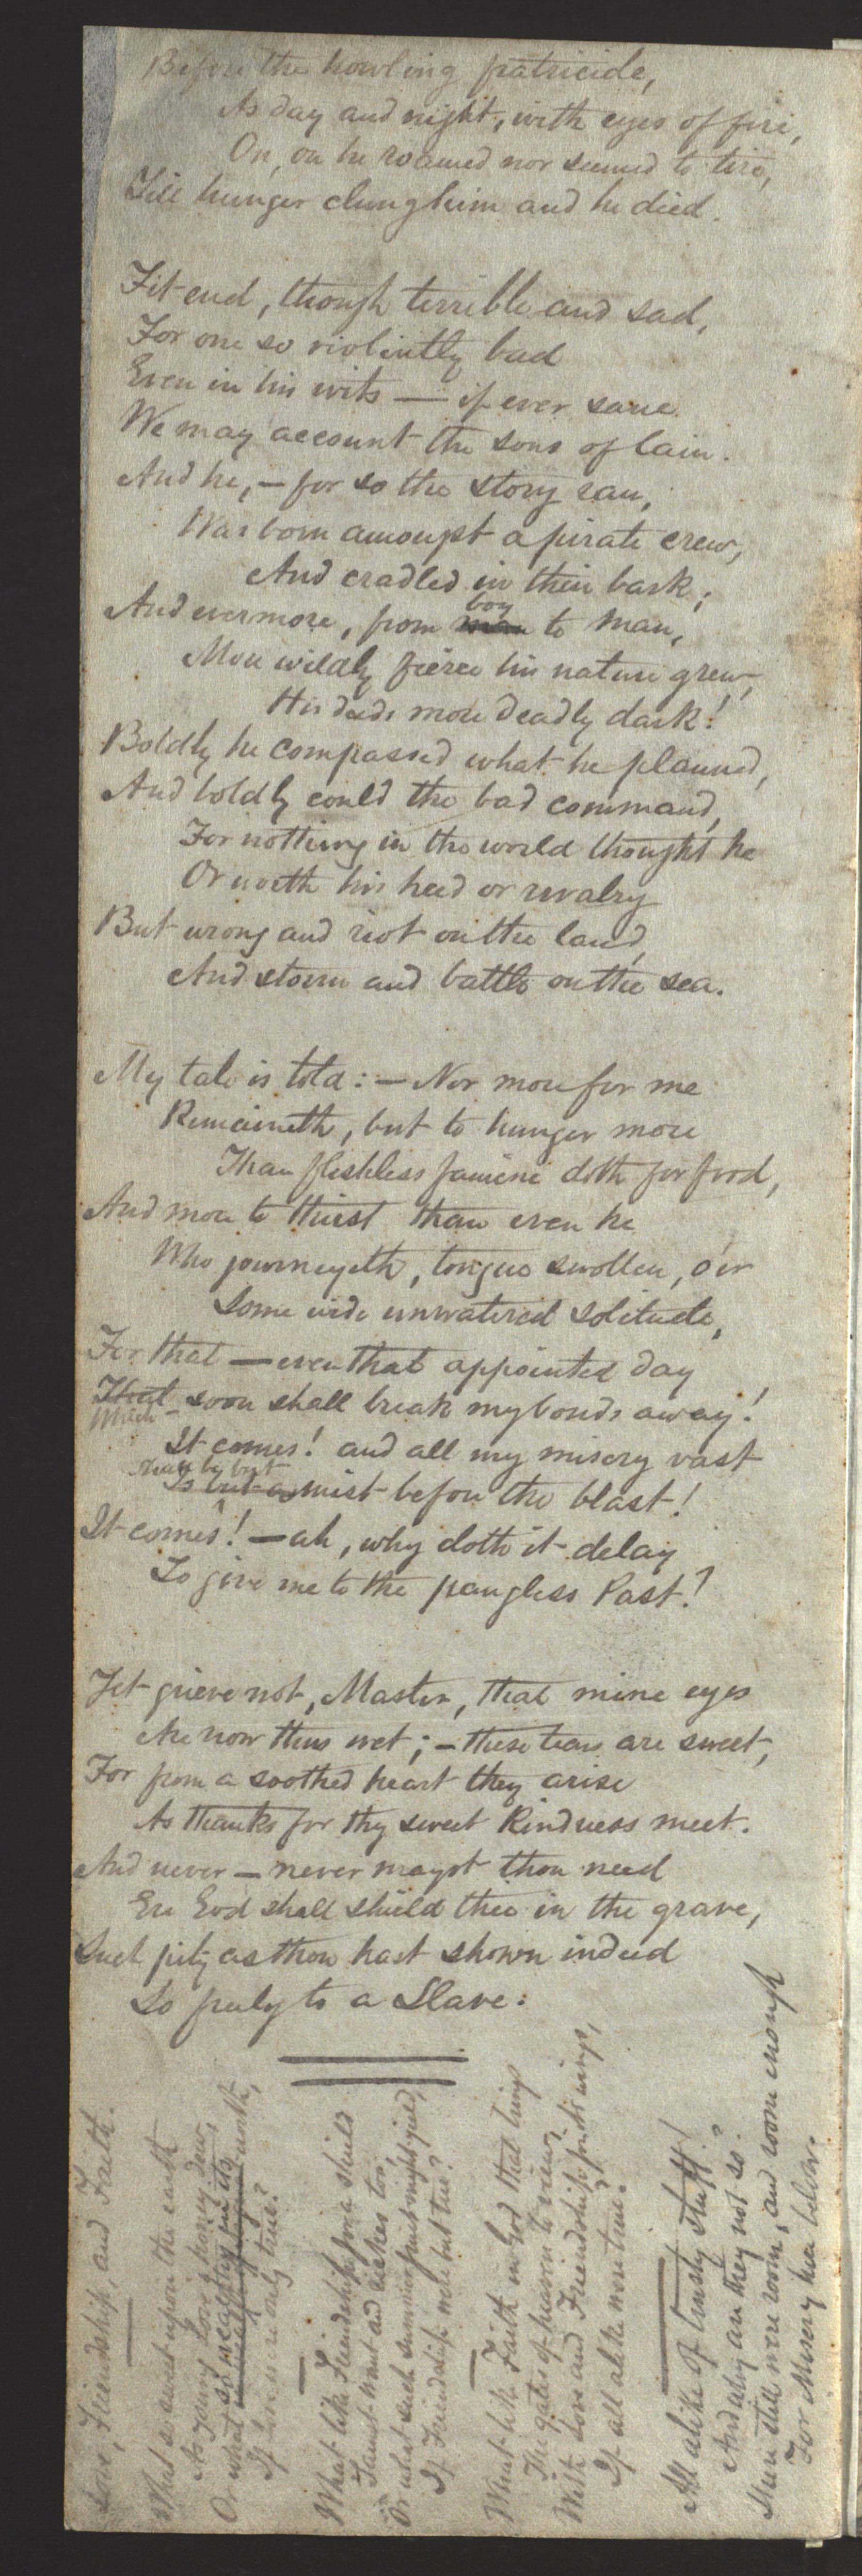 Before the howling fratricide,
As day and night, with eyes of fire,
On, on he roamed nor seemed to tire,
Till hunger clung him and he died.
Fit end, though terrible and sad,
For one so violently bad
Even in his wits — if ever sane
We may account the sons of Cain.
And he, — for so the story ran,
Was born amongst a pirate crew,
And cradled in their bark;
And evermore, from man boy to man,
More wildly fierce his nature grew,
His deeds more deadly dark!
Boldly he compassed what he planned,
And boldly could the bad command,
For nothing in the world thought he
Or worth his heed or rivalry
But wrong and riot on the land,
And storm and battle on the sea.
My tale is told: — Nor more for me
Remaineth, but to hunger more
Than fleshless famine doth for food,
And more to thirst than even he
Who journeyeth, tongue swollen, o'er
Some wide unwatered solitude,
For that — even that appointed day
That Which soon shall break my bonds away!
It comes! and all my misery vast
Is but as Shall be but mist before the blast!
It comes! — ah, why doth it delay
To give me to the pangless Past?
Yet grieve not, Master, that mine eyes
Are now thus wet; — these tears are sweet,
For from a soothed heart they arise
As thanks for thy sweet kindness meet.
And never — never mayst thou need
Ere God shall shield thee in the grave,
Such pity as thou hast shown indeed
So freely to a Slave.
Love, Friendship, and Faith.
What so sweet upon the earth
As young Love's honey dew,
Or what so wealthy in its worth,
If Love were only true?
What like Friendship for a shield
'Gainst want and
Or what such summer fruit might yield,
If Friendship were but true?
What like Faith in God that brings
The gates of heaven to view,
With Love and Friendship for its wings,
If all alike were true?
All alike of trusty stuff!
And why are they not so?
Then still were room, and room enough
For Misery here below.